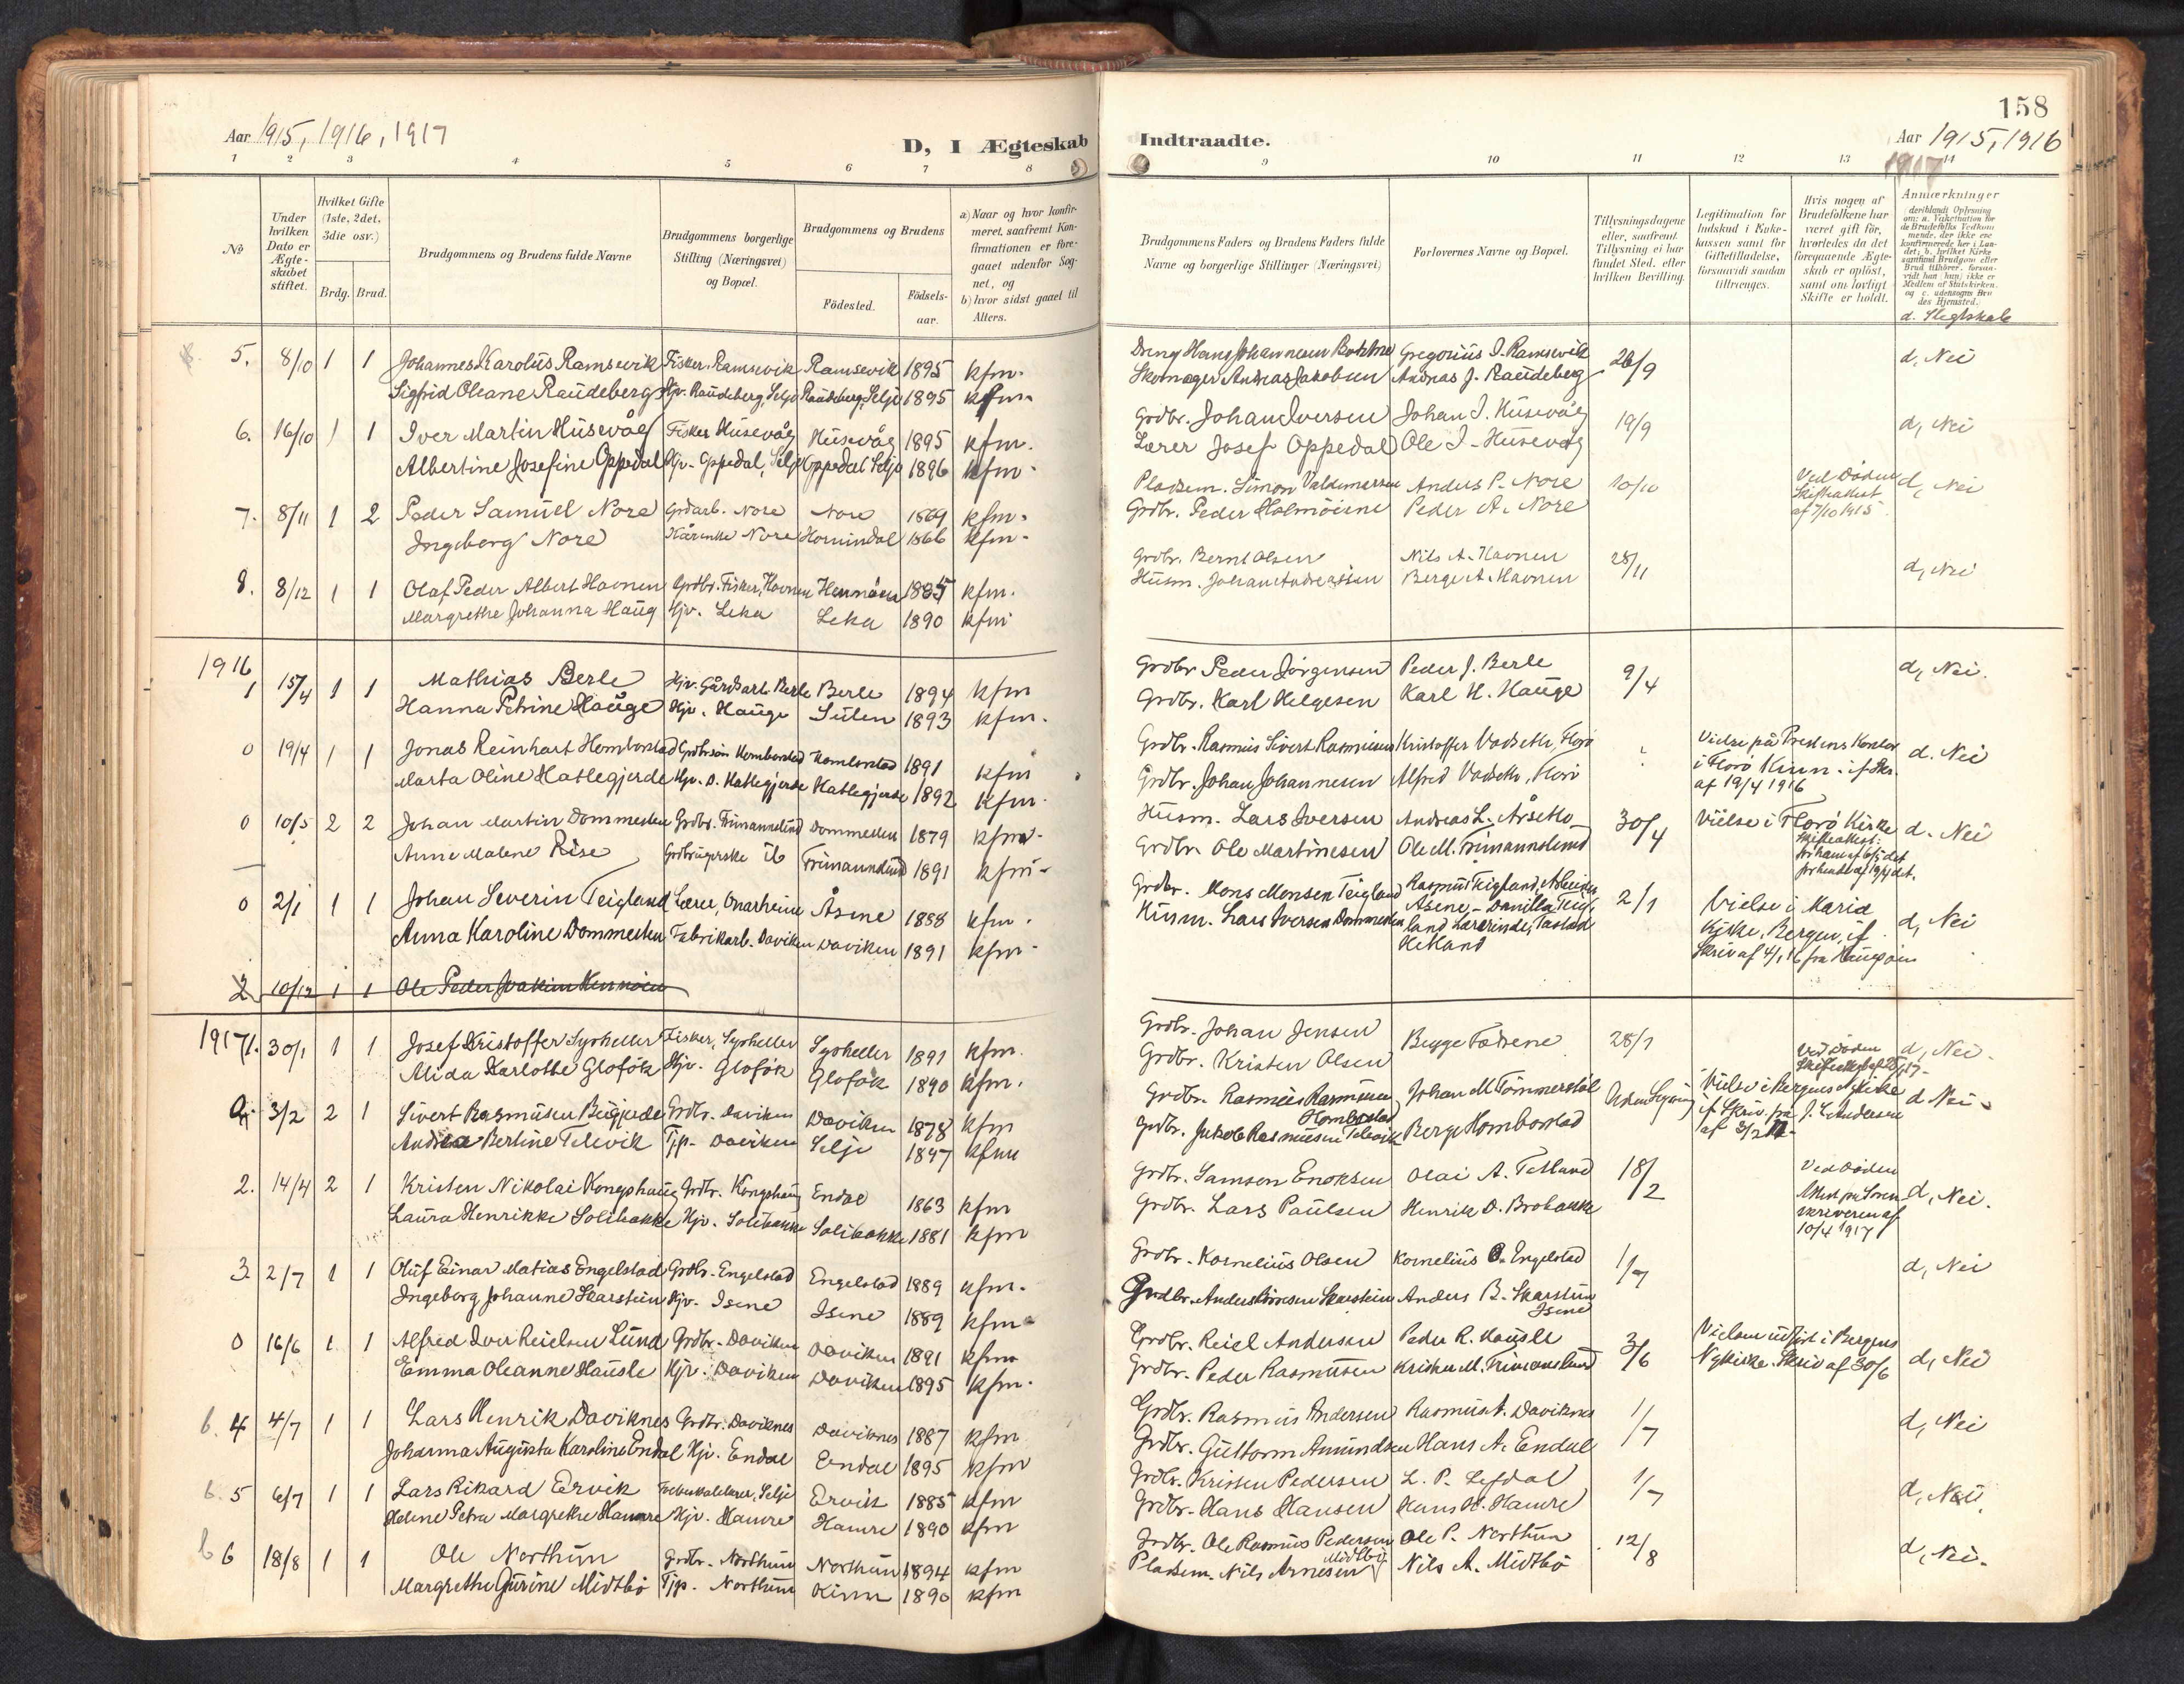 Aar 1915, 1916, 1917
D, I Ægteskab
1 2 3 4 5 6 7 8
№
Under hvilken Dato er Ægteskabet stiftet.
Hvilket Gifte (1ste, 2det, 3die osv.)
Brdg. Brud.
Brudgommens og Brudens fulde Navne
Brudgommens borgerlige Stilling (Næringsvei) og Bopæl.
Brudgommens og Brudens
Fødested.
Fødselsaar.
a) Naar og hvor konfirmeret, saafremt Konfirmationen er foregaaet udenfor Sognet, og
b) hvor sidst gaaet til Alters.
5. 8/10 1 1 Johannes Karolus Ramsevik Fisker, Ramsevik Ramsevik 1895 kfm.
Sigfrid Oleane Raudeberg Hjv. Raudeberg, Selje Raudeberg, Selje 1895 kfm
6. 16/10 1 1 Iver Martin Husevåg Fisker Husevåg Husevåg 1895 kfm.
Albertine Josefine Oppedal Hjv. Oppedal, Selje Oppedal Selje 1896 kfm.
7. 8/11 1 2 Peder Samuel Nore Grdarb. Nore Nore 1869 kfm.
Ingeborg Nore Kårenke Nore Hornindal 1866 kfm.
8. 8/12 1 1 Olaf Peder Albert Havnen Grdbr. Fisker, Havnen Hennøen 1885 kfm.
Margrethe Johanna Haug Hjv. Leka Leka 1890 kfm
1916
1 15/4 1 1 Mathias Berle Hjv. Gårdsarb. Berle Berle 1894 kfm
Hanna Petrine Hauge Hjv. Hauge Sulen 1893 kfm.
0 19/4 1 1 Jonas Reinhart Hombostad Grdbrsøn Hombostad Hombostad 1891 kfm
Marta Oline Hatlegjerde Hjv. D. Hatlegjerde Hatlegjerde 1892 kfm.
0 10/5 2 2 Johan Martin Dommesten Grdbr. Frimannslund Dommesten 1879 kfm.
Anne Malene Rise Grdbrugerske ib Frimannslund 1891 kfm
0 2/1 1 1 Johan Severin Teigland Lærer, Onarheim Åsene 1888 kfm.
Anna Karoline Dommesten Fabrikarb. Daviken Daviken 1891 kfm
2 10/12 1 1 Ole Peder Joakim Hennøen
1917 1. 30/1 1 1 Josef Kristoffer Syrheller Fisker, Syrheller Syrheller 1891 kfm.
Alida Karlotte Gloføk Hjv. Gloføk Gloføk 1890 kfm.
0. 3/2 2 1 Sivert Rasmusen Grdbr. Daviken Daviken 1878 kfm
Andrea Bertine Televik Tjp. Daviken Selje 1897 kfm
2. 14/4 2 1 Kristen Nikolai Kongshaug Grdbr. Kongshaug Endal 1863 kfm
Laura Henrikke Solibakke Hjv. Solibakke Solibakke 1881 kfm
3. 2/7 1 1 Oluf Einar Matias Engelstad Grdbr. Engelstad Engelstad 1889 kfm.
Ingeborg Johanne Skarstein Hjv. Isene Isene 1889 kfm
0 16/6 1 1 Alfred Iver Reielsen Lund Grdbr. Daviken Daviken 1891 kfm
Emma Oleanne Hausle Hjv. Daviken Daviken 1895 kfm.
b. 4 4/7 1 1 Lars Henrik Daviknes Grdbr. Daviknes Daviknes 1887 kfm
Johanna Augusta Karoline Endal Hjv. Endal Endal 1895 kfm
b. 5 6/7 1 1 Lars Rikard Ervik Selje Ervik 1885 kfm
Helene Petra Margrethe Hamre Hjv. Hamre Hamre 1890 kfm
b 6 18/8 1 1 Ole Northun Grdbr. Northun Northun 1894 kfm
Margrethe Gurine Midtbø Tjp. Northun Kinn 1890 kfm
158
Indtraadte.
Aar 1915, 1916
1917
9 10 11 12 13 14
Brudgommens Faders og Brudens Faders fulde Navne og borgerlige Stillinger (Næringsvei)
Forlovernes Navne og Bopæl.
Tillysningsdagene eller, saafremt Tillysning ei har fundet Sted, efter hvilken Bevilling.
Legitimation for Indskud i Enkekassen samt for Giftetilladelse, forsaavidt saadan tiltrænges.
Hvis nogen af Brudefolkene har været gift før, hvorledes da det foregaaende Ægteskab er opløst, samt om lovligt Skifte er holdt.
Anmærkninger
(deriblandt Oplysning om: a. Vakcination for de Brudefolks Vedkommende, der ikke ere konfirmerede her i Landet; b. hvilket Kirkesamfund Brudgom eller Brud tilhører, forsaavidt han (hun) ikke er Medlem af Statskirken, og c. udensogns Brudes Hjemsted.)
d. Slegtskab
Dreng Hans Johannesen Gregorius J. Ramsevik 26/9 d, Nei
Skomager Andreas Jakobsen Andreas J. Raudeberg
Grdbr. Johan Iversen Johan I. Husevåg 19/9 d, Nei
Lærer Josef Oppedal Ole I. Husevåg
Pladsem. Simon Valdemarsen Anders P. Nore 10/10 Ved Døden d, Nei
Grdbr. Peder Holmøiene Peder A. Nore Skifteattest
af 7/10 1915
Grdbr. Bernt Olsen Nils A. Havnen 28/11 d, Nei
Husm. Johan Andreassen Berge A. Havnen
Grdbr Peder Jørgensen Peder J. Berle 9/4 d, Nei.
Grdbr. Karl Helgesen Karl H. Hauge
Grdbr. Rasmus Sivert Rasmusen Kristoffer Vadseth, Florø Vielse på Prestens Kontor d. Nei
Grdbr. Johan Johannesen Alfred Vadseth, Florø i Florø Kinn. if. Skr.
af 19/4 1916
Husm. Lars Iversen Andreas L. Årseth 30/4 Vielse i Florø Kirke d. Nei
Grdbr. Ole Martinesen Ole M. Frimannslund Skifteattest:
Grdbr. Mons Monsen Teigland Rasmus Teigland, Arbeider 2/1 Vielse i Maria d, Nei
Husm. Lars Iversen Dommesten Åsene - Danilla Teigland Lærerinde, Tastad Kirke, Bergen, if
Hetland Skriv af 4/1 16 fra Haugsøen
Grdbr. Johan Jensen Begge Fædrene 28/1 d, Nei.
Grdbr. Kristen Olsen
Grdbr. Rasmus Rasmusen Hombostad Johan M. Tømmerstøl Vielse i Bergens Nykirke d Nei.
Grdbr. Jakob Rasmusen Televik Berge Hombostad if Skriv. fra J. L. Andersen
af 3/2 17
Grdbr. Samson Enoksen Olai A. Tetland 18/2 Ved Døden d, Nei.
Grdbr. Lars Paulsen Henrik O. Brobakke Attest fra Sorenskriveren af
10/4 1917
Grdbr. Kornelius Olsen Kornelius O. Engelstad 1/7 d, Nei
Grdbr. Anders Skarstein Anders B. Skarstein
Isene
Grdbr. Reiel Andersen Peder R. Hausle 3/6 Vielsen udført i Bergens d, Nei
Grdbr. Peder Rasmusen Kristen M. Frimanslund Nykirke. Skriv af 30/6
Grdbr. Rasmus Andersen Rasmus A. Daviknes 1/7 d, Nei
Grdbr. Guttorm Amundsen Hans A. Endal
Grdbr. Kristen Pedersen L. P. Lefdal 1/7 d, Nei
Grdbr. Hans Hansen Hans H. Hamre
Grdbr. Ole Rasmus Pedersen Ole P. Northun 12/8 d, Nei.
Pladsem. Nils Arnesen Midtbø Nils A. Midtbø